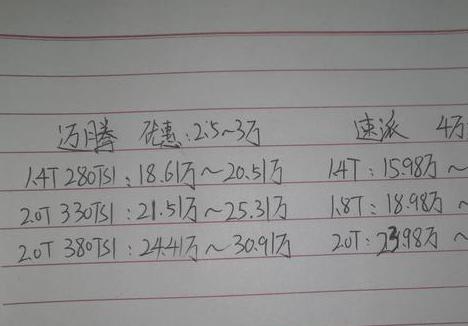 迈腾 优惠：2.5~3万 速派 4万
1.4T 280TSI：18.61万~20.51万 1.4T：15.98万~
2.0T 330TSI：21.51万~25.31万 1.8T：18.98万~
2.0T 380TSI：24.41万~30.91万 2.0T：23.98万~